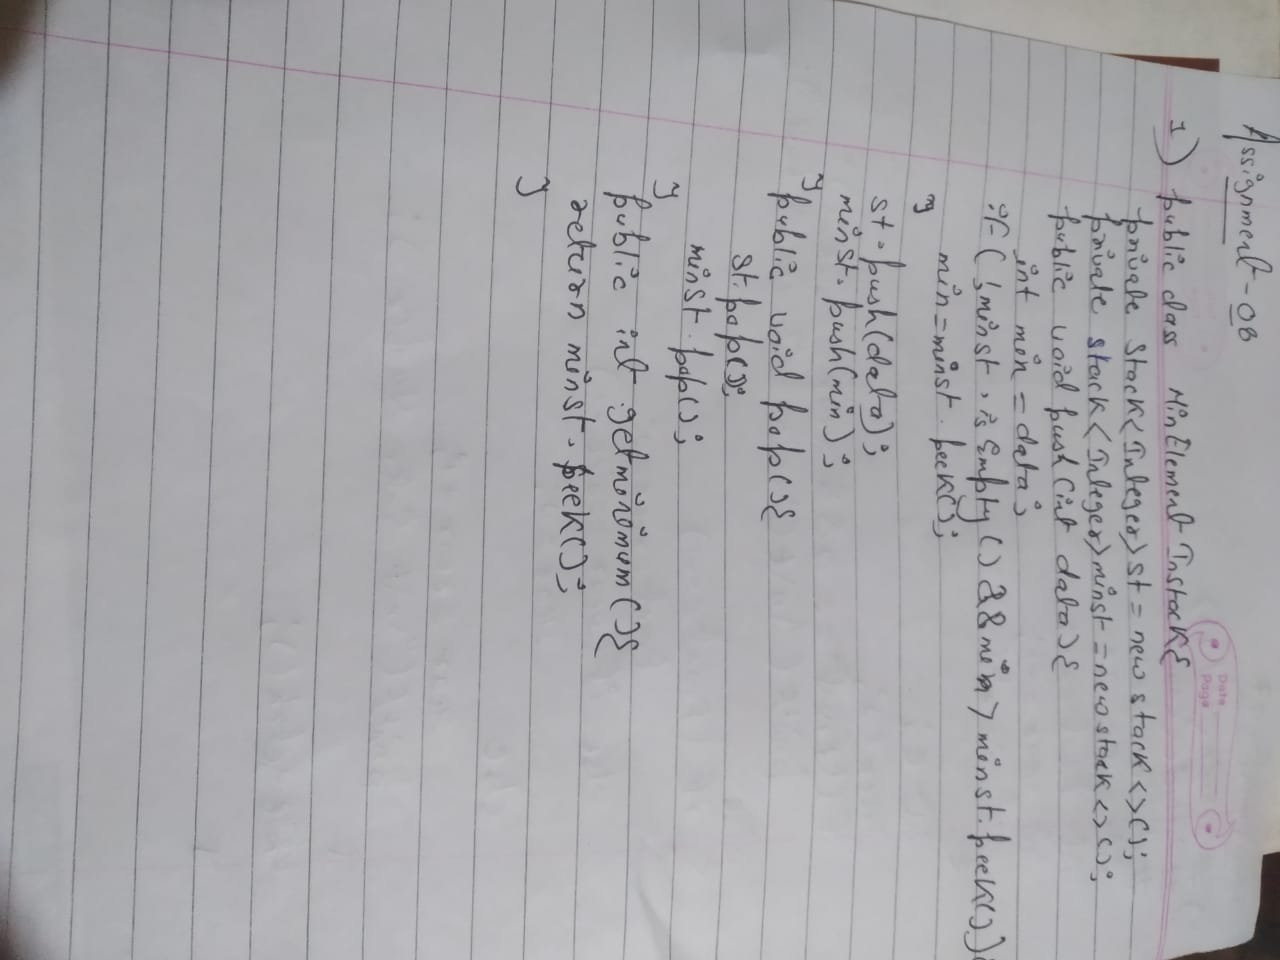 Assignment-08
Date
Page
1) public class MinElement Instack{
private Stack<Integer>st = new stack<>();
private stack<Integer>minst=new stack<>();
public void push(int data){
int min=data;
if(!minst.isEmpty()&&min>minst.peek()){
min=minst.peek();
}
st.push(data);
minst.push(min);
}
public void pop(){
st.pop();
minst.pop();
}
public int getminimum(){
return minst.peek();
}